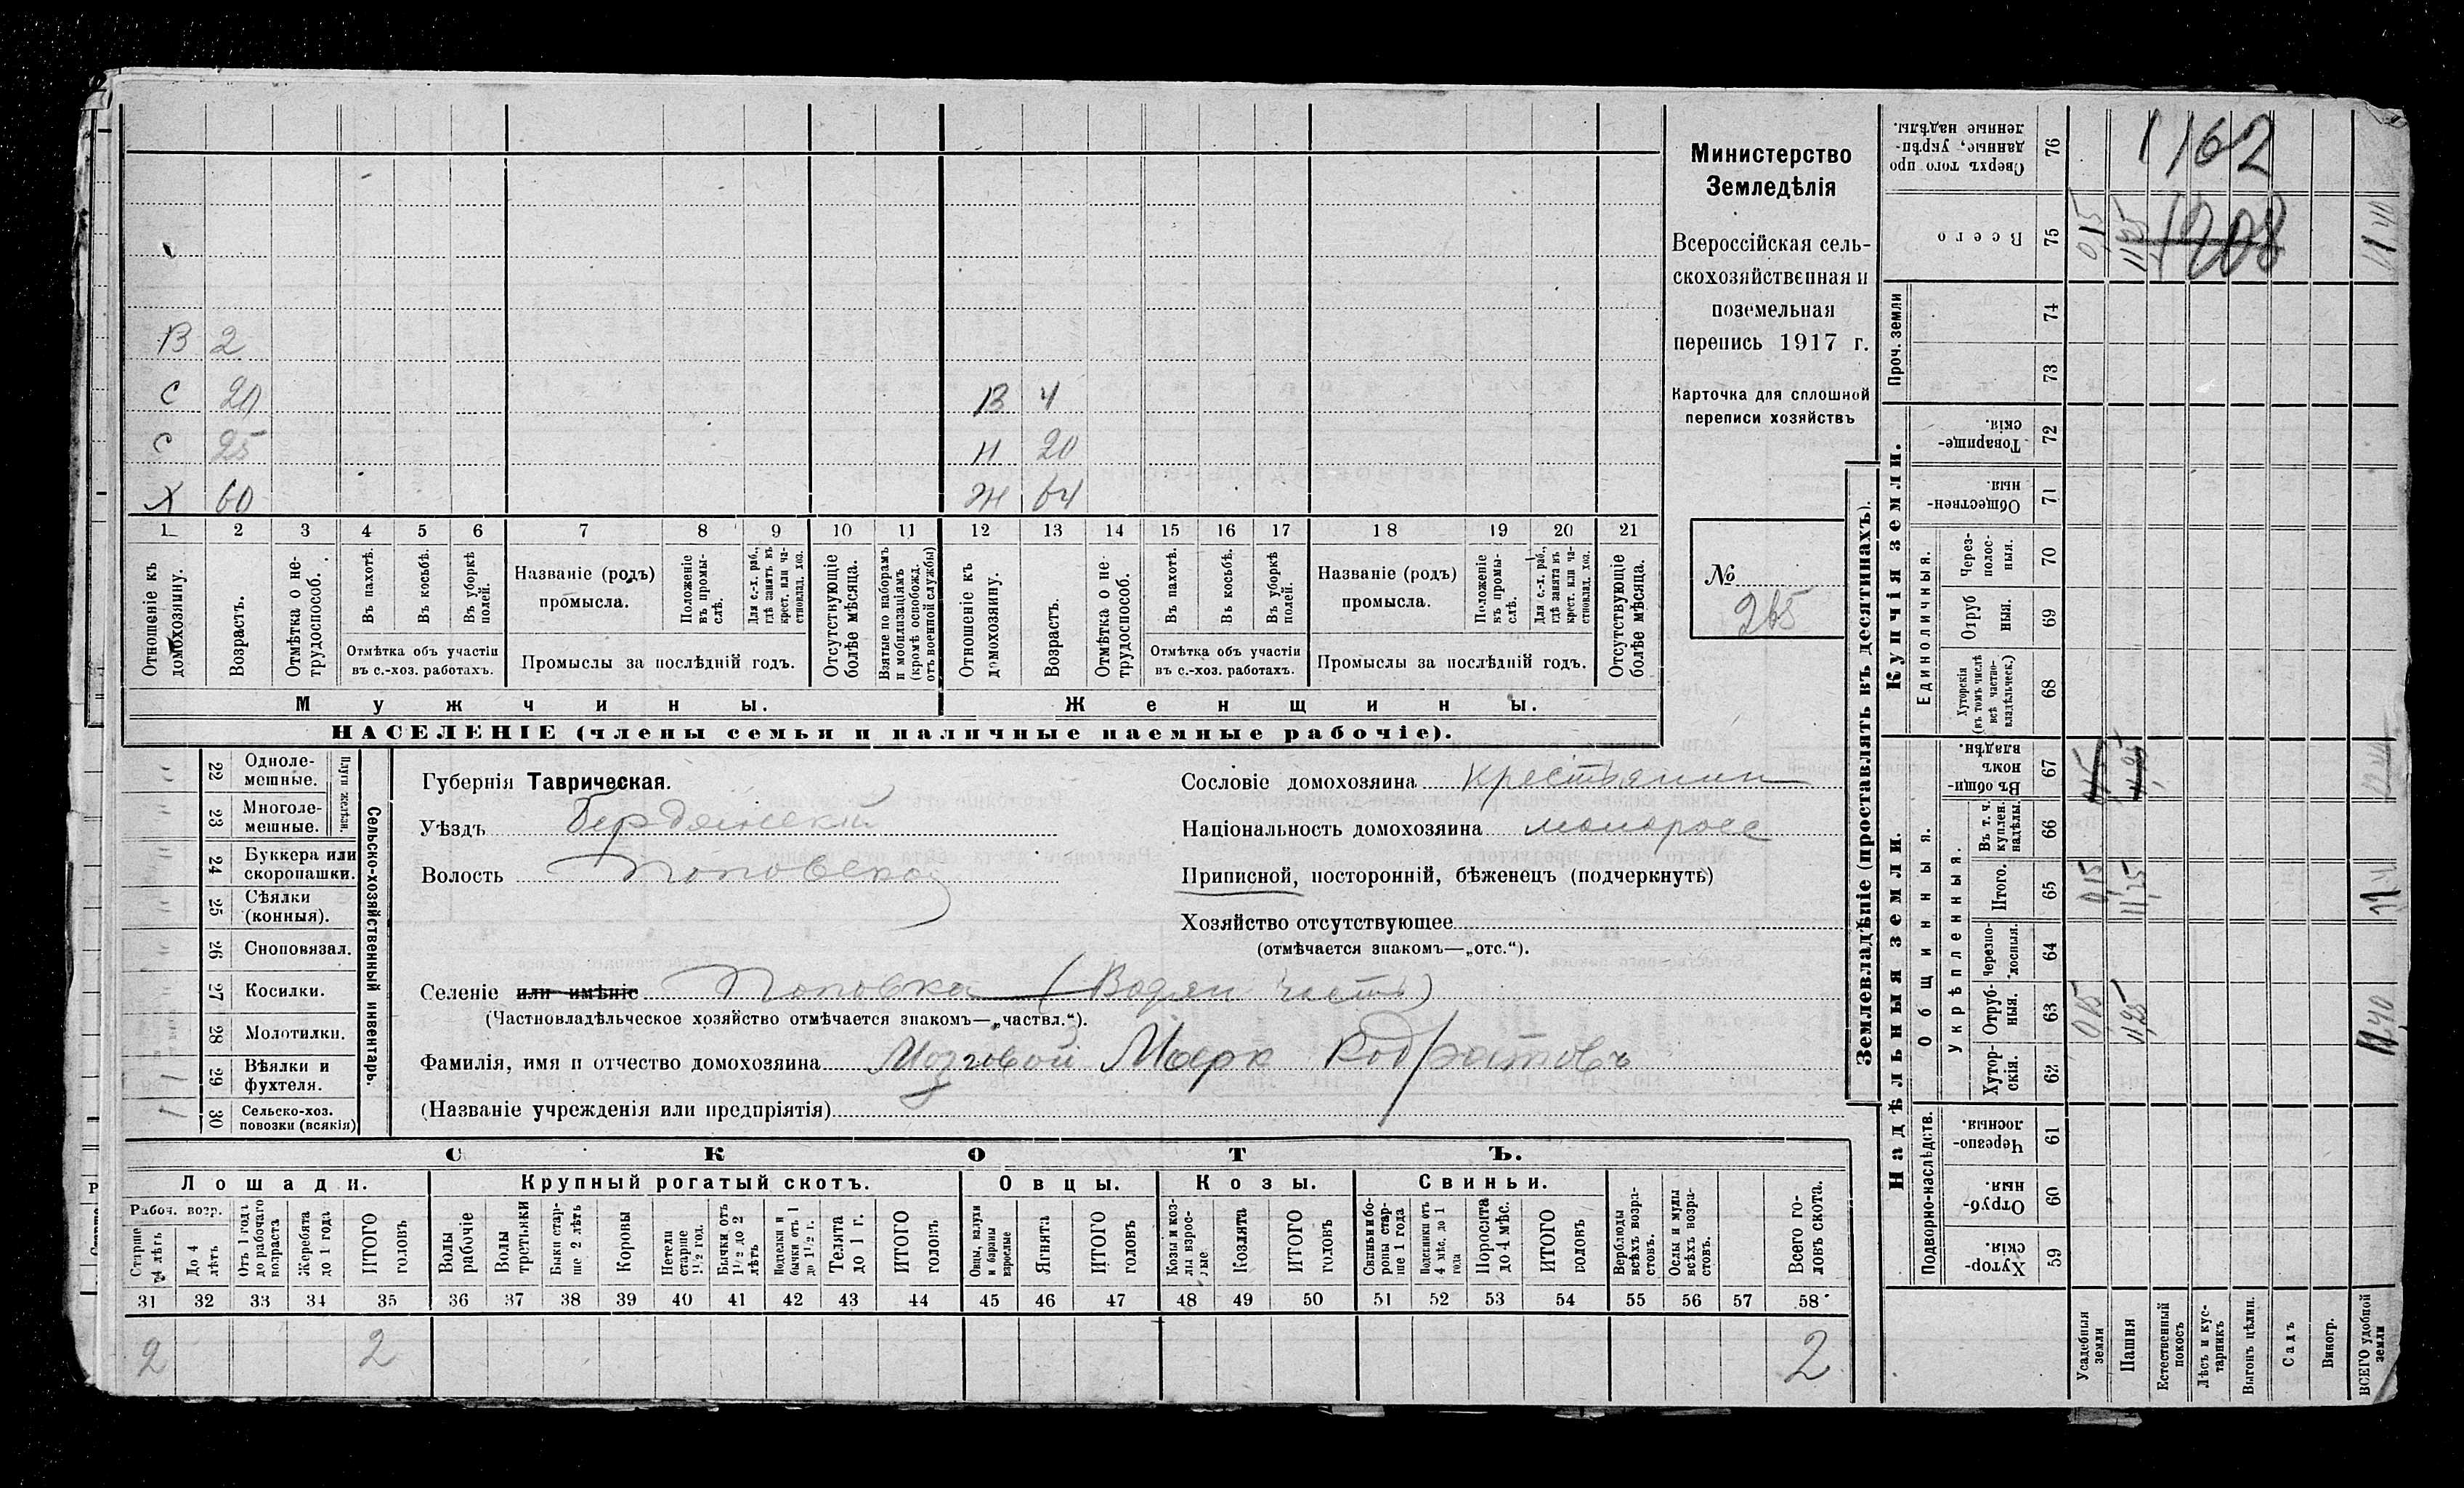 В 2
С 20 В 4
С 25 Н 20
Х 60 Ж 64
1 2 3 4 5 6 7 8 9 10 11 12 13 14 15 16 17 18 19 20 21
Отношеніе къ домохозяину.
Возрастъ.
Отмѣтка о нетрудоспособ.
Въ пахотѣ.
Въ косьбѣ.
Въ уборкѣ полей.
Отмѣтка объ участіи въ с.-хоз. работахъ.
Названіе (родъ) промысла.
Положеніе въ промыслѣ.
Для с.-х. раб., гдѣ занятъ въ крест. или частновлад. хоз.
Промыслы за послѣдній годъ.
Отсутствующіе болѣе мѣсяца.
Взятые по наборамъ и мобилизаціямъ (кромѣ освобожд. отъ военной службы)
Отношеніе къ домохозяину.
Возрастъ.
Отмѣтка о нетрудоспособ.
Въ пахотѣ.
Въ косьбѣ.
Въ уборкѣ полей.
Отмѣтка объ участіи въ с.-хоз. работахъ.
Названіе (родъ) промысла.
Положеніе въ промыслѣ.
Для с.-х. раб., гдѣ занята въ крест. или частновлад. хоз.
Промыслы за послѣдній годъ.
Отсутствующіе болѣе мѣсяца.
Мужчины. Женщины.
НАСЕЛЕНІЕ (члены семьи и наличные наемные рабочіе).
Министерство
Земледѣлія
Всероссійская сель-
скохозяйственная и
поземельная
перепись 1917 г.
Карточка для сплошной
переписи хозяйствъ
№
265
22 Одноле-мешные.
23 Многоле-мешные.
Плуги желѣзн.
24 Буккера или скоропашки.
25 Сѣялки (конныя).
26 Сноповязал.
27 Косилки.
28 Молотилки.
1 29 Вѣялки и фухтеля.
1 30 Сельско-хоз. повозки (всякія)
Сельско-хозяйственный инвентарь.
Губернія Таврическая.
Уѣздъ Бердянскій
Волость Поповская
Сословіе домохозяина крестьянин
Національность домохозяина малоросс
Приписной, посторонній, бѣженецъ (подчеркнуть)
Хозяйство отсутствующее
(отмѣчается знакомъ—„отс.“).
Селеніе или имѣніе Поповка (Водян часть)
(Частновладѣльческое хозяйство отмѣчается знакомъ—„частвл.“).
Фамилія, имя и отчество домохозяина Мозговой Марк Кодратовъ
(Названіе учрежденія или предпріятія)
СКОТЪ.
Лошади. Крупный рогатый скотъ. Овцы. Козы. Свиньи.
Рабоч. возр.
Старше 4 лѣтъ
До 4 лѣтъ
Отъ 1 года до рабочаго возраста
Жеребята до 1 года
ИТОГО головъ
Волы рабочіе
Волы третьяки
Быки старше 2 лѣтъ
Коровы
Нетели старше 1½ год.
Бычки отъ 1½ до 2 лѣтъ
Подтелки и бычки отъ 1 до 1½ г.
Телята до 1 г.
ИТОГО головъ.
Овцы, валухи и бараны взрослые
Ягнята
ИТОГО головъ
Козы и козлы взрослые
Козлята
ИТОГО головъ
Свиньи и боровы старше 1 года
Подсвинки отъ 4 мѣс. до 1 года
Поросята до 4 мѣс.
ИТОГО головъ
Верблюды всѣхъ возрастовъ.
Ослы и мулы всѣхъ возрастовъ.
Всего головъ скота.
31 32 33 34 35 36 37 38 39 40 41 42 43 44 45 46 47 48 49 50 51 52 53 54 55 56 57 58
2 2 2
Землевладѣніе (проставлять въ десятинахъ).
Сверхъ того проданные, укрѣпленные надѣлы. 76 1162
Всего 75 0,15 11,25 1208 11,40
Проч. земли 74
73
Купчія земли.
Товарищескія. 72
Общественныя. 71
Единоличныя.
Черезполосныя. 70
Отрубныя. 69
Хуторскія (въ томъ числѣ всѣ частновладѣльческ.) 68
Надѣльныя земли.
Общинныя.
Въ общинномъ владѣн. 67 0,15 11,25
Укрѣпленныя.
Въ т. ч. куплен. надѣлы. 66
Итого. 65 0,15 11,25
Черезполосныя. 64
Отрубныя. 63 0,15 11,25 11,40
Хуторскія. 62
Подворно-наслѣдств.
Черезполосныя. 61
Отрубныя. 60
Хуторскія. 59
Усадебныя земли
Пашня
Естественный покосъ
Лѣсъ и кустарникъ
Выгонъ цѣлин.
Садъ
Виногр.
ВСЕГО удобной земли